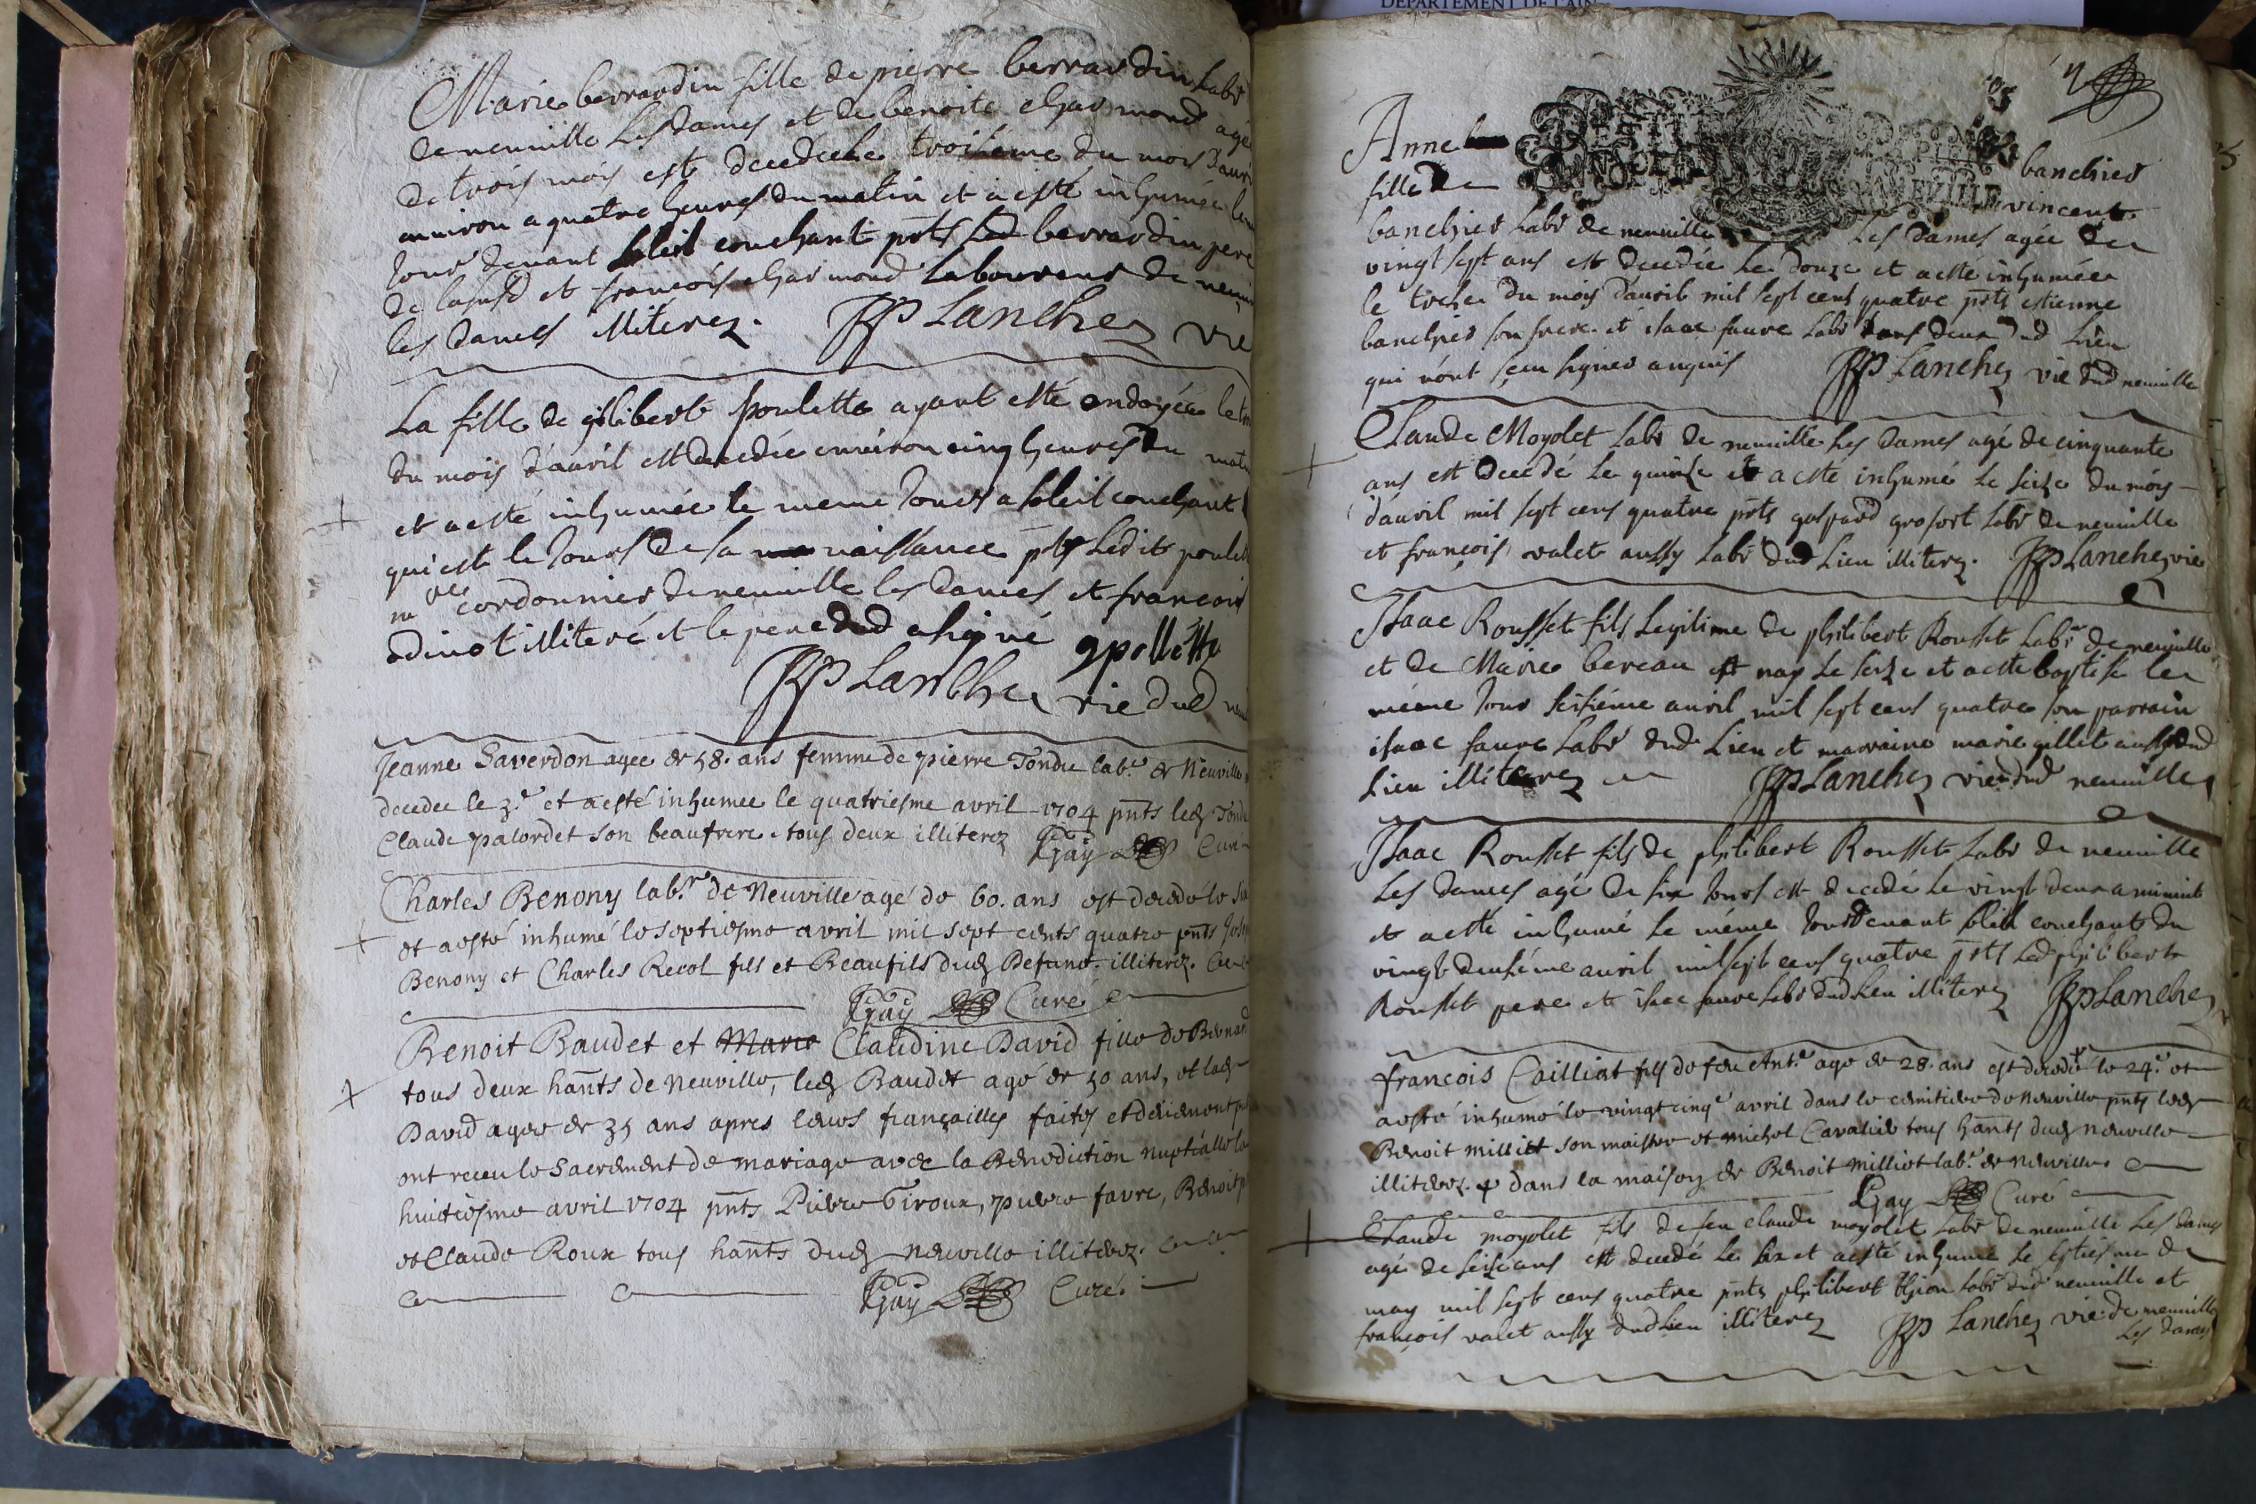 Marie berrardin fille de pierre berrardin Labr
de neuuille Les dames et de benoite charmond agé
de trois mois est decedée le troisieme du mois dauri
enuiron a quatre heures du matin et a esté inhumée le
Jour deuant soleil couchant pnts Led berrardin pere
de lasusd et francois charmond Laboureur de neuui
les dames illiterez. JP Lanchez vie
La fille de philibert poulette ayant esté ondoyée le
du mois dauril est decedée enuiron cinq heures du matin
et a esté inhumée le meme Jour a soleil couchant
qui est le Jour de sa naissance pnts Ledit poulet
cordonnier de neuuille les dames et francois
odinot illiteré et le pere dud a signé gpollette
JP Lanchez vie dud
Jeanne Saverdon agee de 58. ans femme de pierre Tondu labr. de Neuville
decedee le 3e et a esté inhumee le quatriesme avril 1704 pnts led Tondu
Claude palordet son beaufrere tous deux illiterez Gay Curé
Charles Benony labr. de Neuville agé de 60. ans est decedé le six
et a esté inhumé le septiesme avril mil sept cents quatre pnts Jos
Benony et Charles Recol fils et Beaufils dud Defunt. illiterez.
Gay Curé
Benoit Baudet et Marie Claudine David fille de Bernard
tous deux hants de Neuville, led Baudet agé de 50 ans, et lad
David agee de 35 ans apres leurs fiançailles faites et deüement
ont receu le Sacrement de mariage avec la Benediction nuptialle le
huitiesme avril 1704 pnts Pierre Giroux, pierre favre, Benoit
et Claude Roux tous hants dud neuville illiterez.
Gay Curé.
DEPARTEMENT DE L'AIN
Anne banchier
fille de vincent
banchier Labr de neuuille Les dames agée de
vingt sept ans est decedée Le douze et a esté inhumée
le treize du mois dauril mil sept cens quatre pnts estienne
banchier son frere et isaac faure Labr tous deux dud Lieu
qui nont sceu signer enquis JP Lanchez vie dud neuuille
Claude Moyolet Labr de neuuille Les dames agé de cinquante
ans est decedé Le quinze et a esté inhumé Le seize du mois
dauril mil sept cens quatre pnts gaspard grosort Labr de neuuille
et françois valet aussy Labr dud Lieu illiterez. JP Lanchez vie
Isaac Rousset fils Legitime de philibert Rousset Labr de neuuille
et de Marie bereau est nay Le seize et a esté baptise le
méme Jour seisiéme auril mil sept cens quatre son parrain
isaac faure Labr dud Lieu et marraine marie gillet aussy dud
Lieu illiterez JP Lanchez vie dud neuuille
Isaac Rousset fils de philibert Rousset Labr de neuuille
Les dames agé de six Jours est decedé Le vingt deux a minuit
et a esté inhumé Le méme Jour deuant soleil couchant du
vingt deuxiéme auril mil sept cens quatre pnts Led philibert
Rousset pere et isaac faure Labr dud Lieu illiterez JP Lanchez
francois Cailliat fils de feu Ant.e age de 28. ans est decedé le 24.e et
a esté inhumé le vingt cinq.e avril dans le cimitiere de Neuville pnts led
Benoit milliet son maistre et michel Cavalier tous hants dud neuville
illiterez. dans la maison de Benoit milliet labr. de neuville.
Gay Curé
Claude moyolet fils de feu claude moyolet Labr de neuuille Les dames
agé de seize ans est decedé Le six et a esté inhumé Le septiesme de
may mil sept cens quatre pnts philibert thion Labr dud neuuille et
françois valet aussy dud Lieu illiterez JP Lanchez vie. de neuuille
Les dames